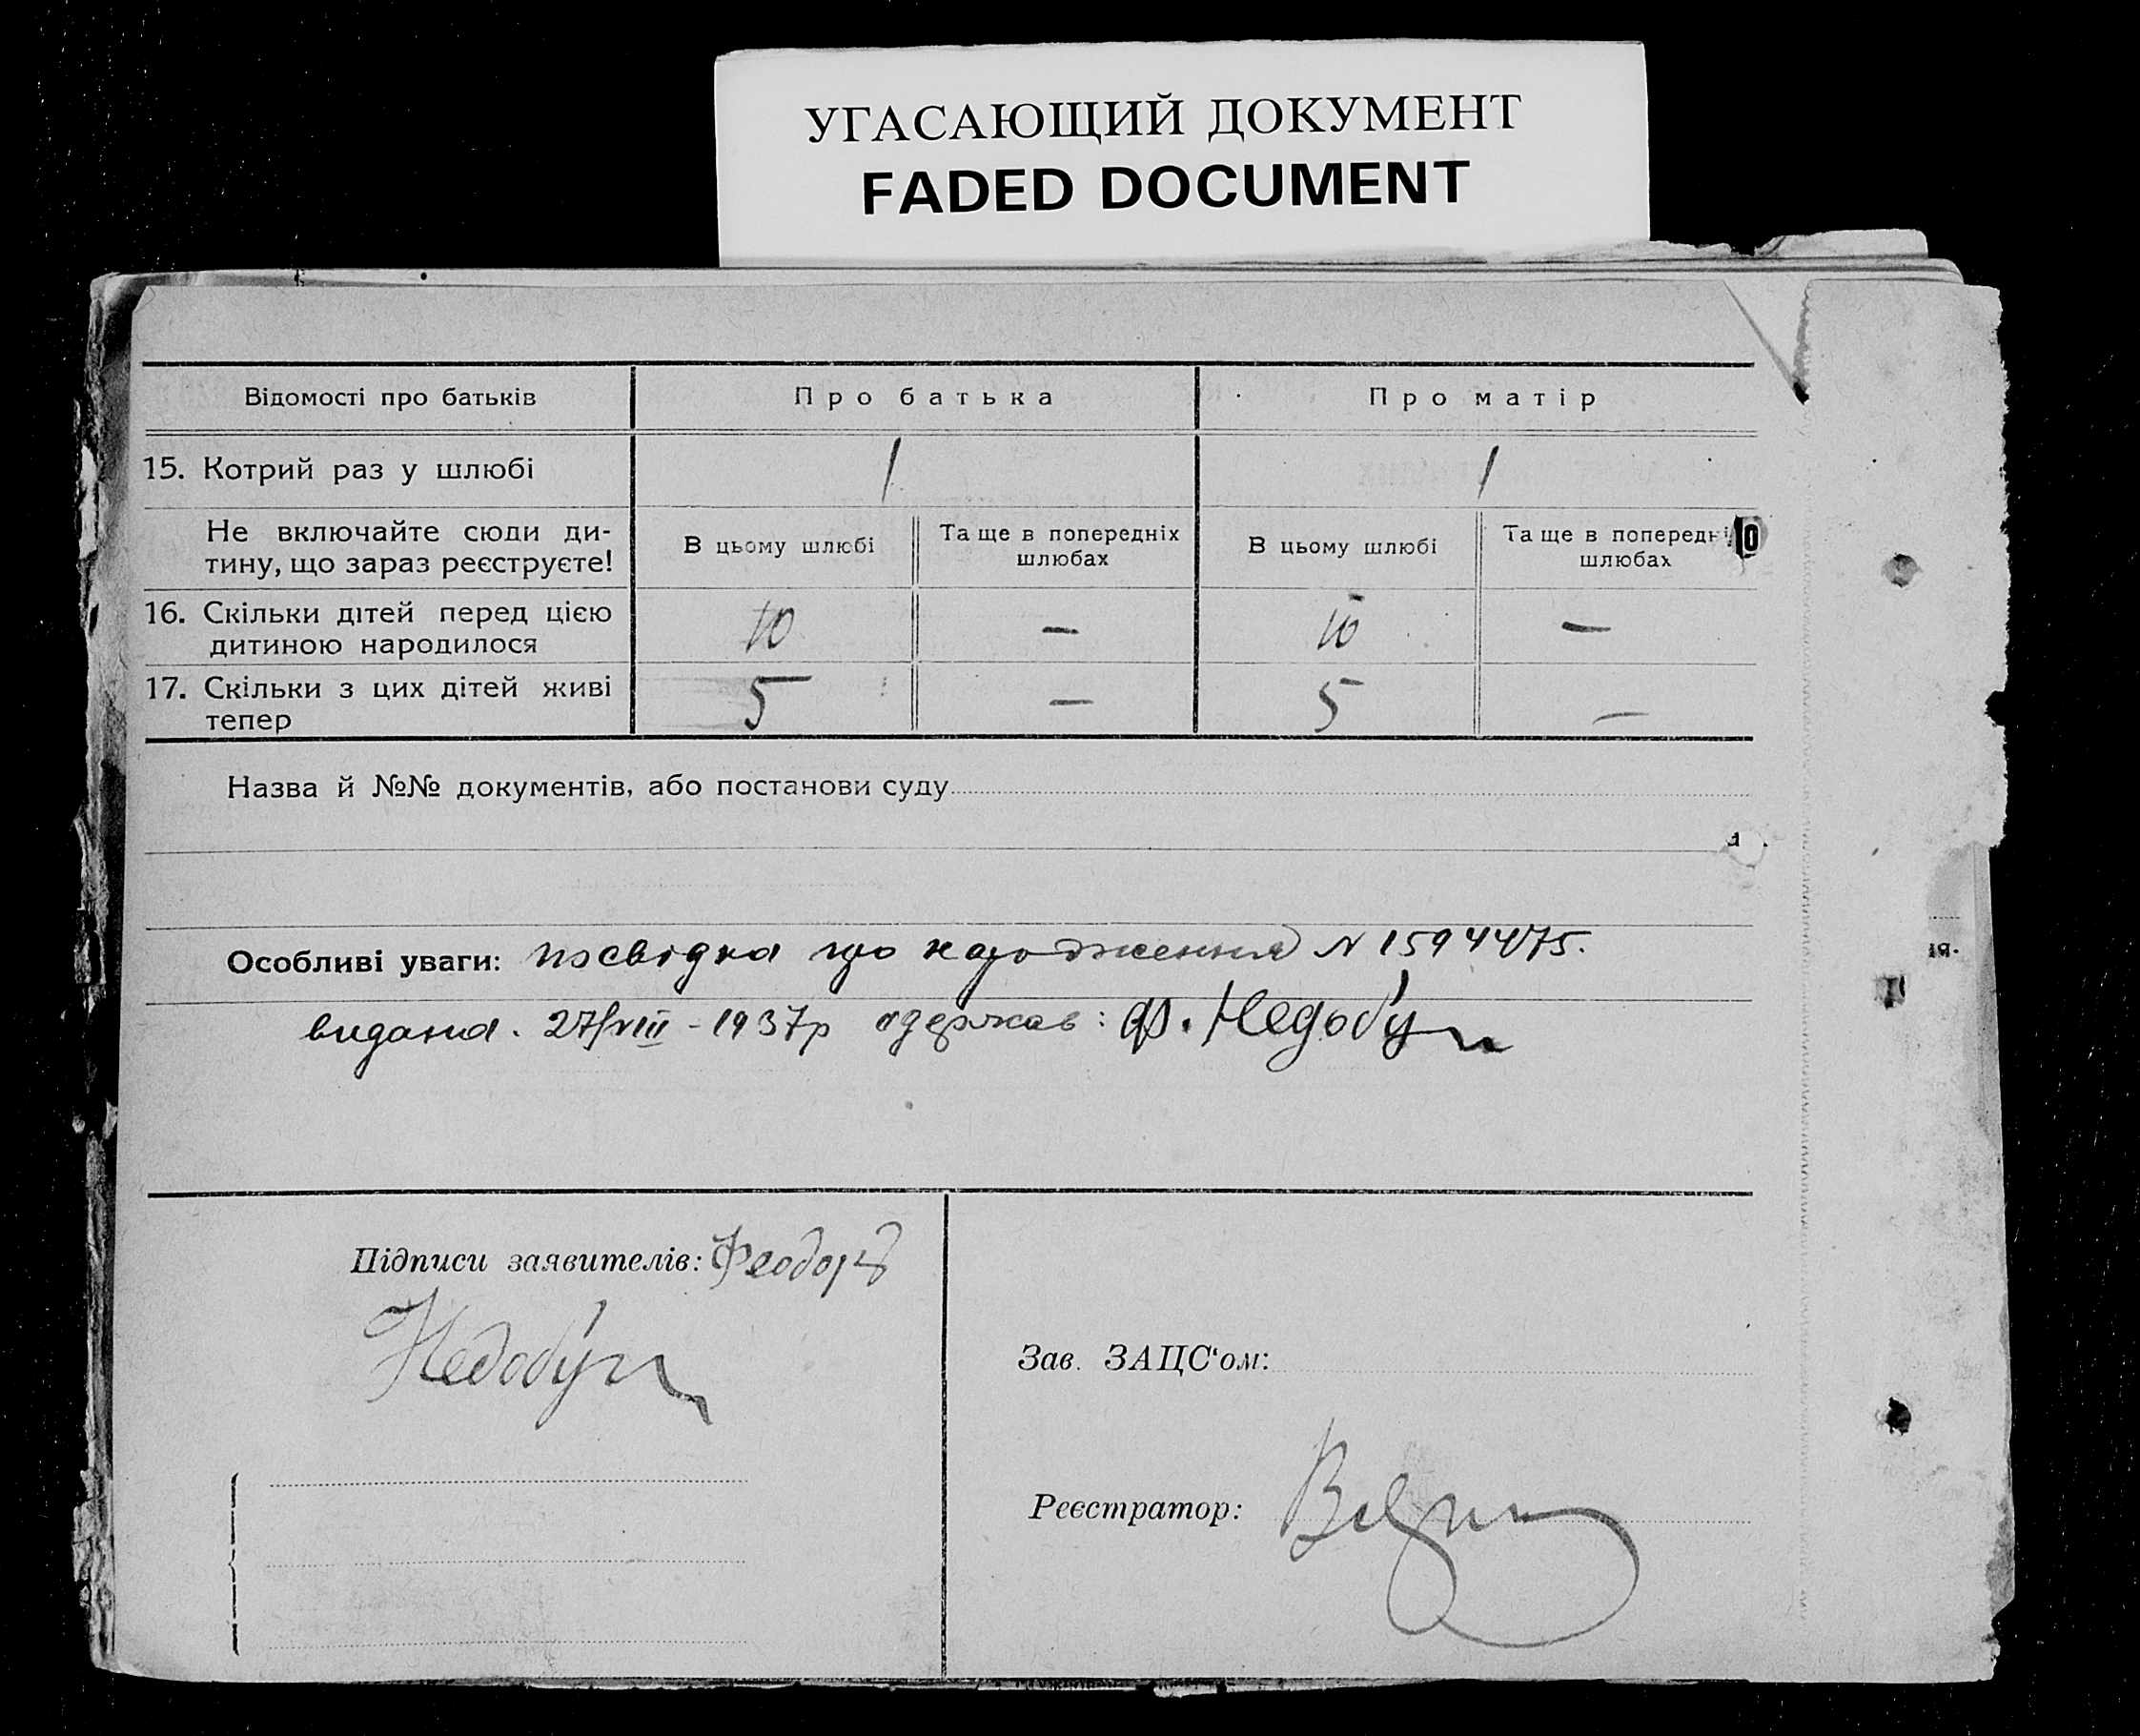 УГАСАЮЩИЙ ДОКУМЕНТ
FADED DOCUMENT
Відомості про батьків
Про батька
Про матір
15. Котрий раз у шлюбі
1
1
Не включайте сюди ди-
тину, що зараз реєструєте!
В цьому шлюбі
Та ще в попередніх
шлюбах
В цьому шлюбі
Та ще в попередні
шлюбах
16. Скільки дітей перед цією
дитиною народилося
10
—
10
—
17. Скільки з цих дітей живі
тепер
5
—
5
—
Назва й №№ документів, або постанови суду
Особливі уваги: посвідка про народження N 1594475.
видана. 27/VIII - 1937р одержав: Ф. Недобуг
Підписи заявителів: Феодор
Недобуг
Зав. ЗАЦС‘ом:
Реєстратор: